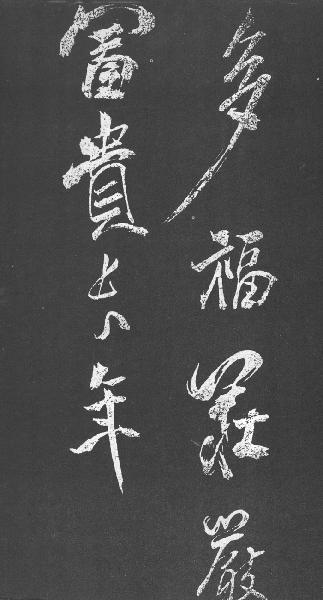 多福莊嚴
富貴長年